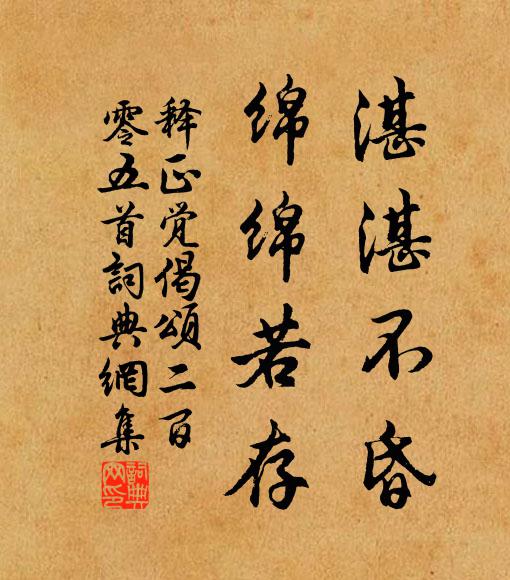 湛湛不昏
绵绵若存
释正觉偈颂二百
零五首詞典網集
詞典网印